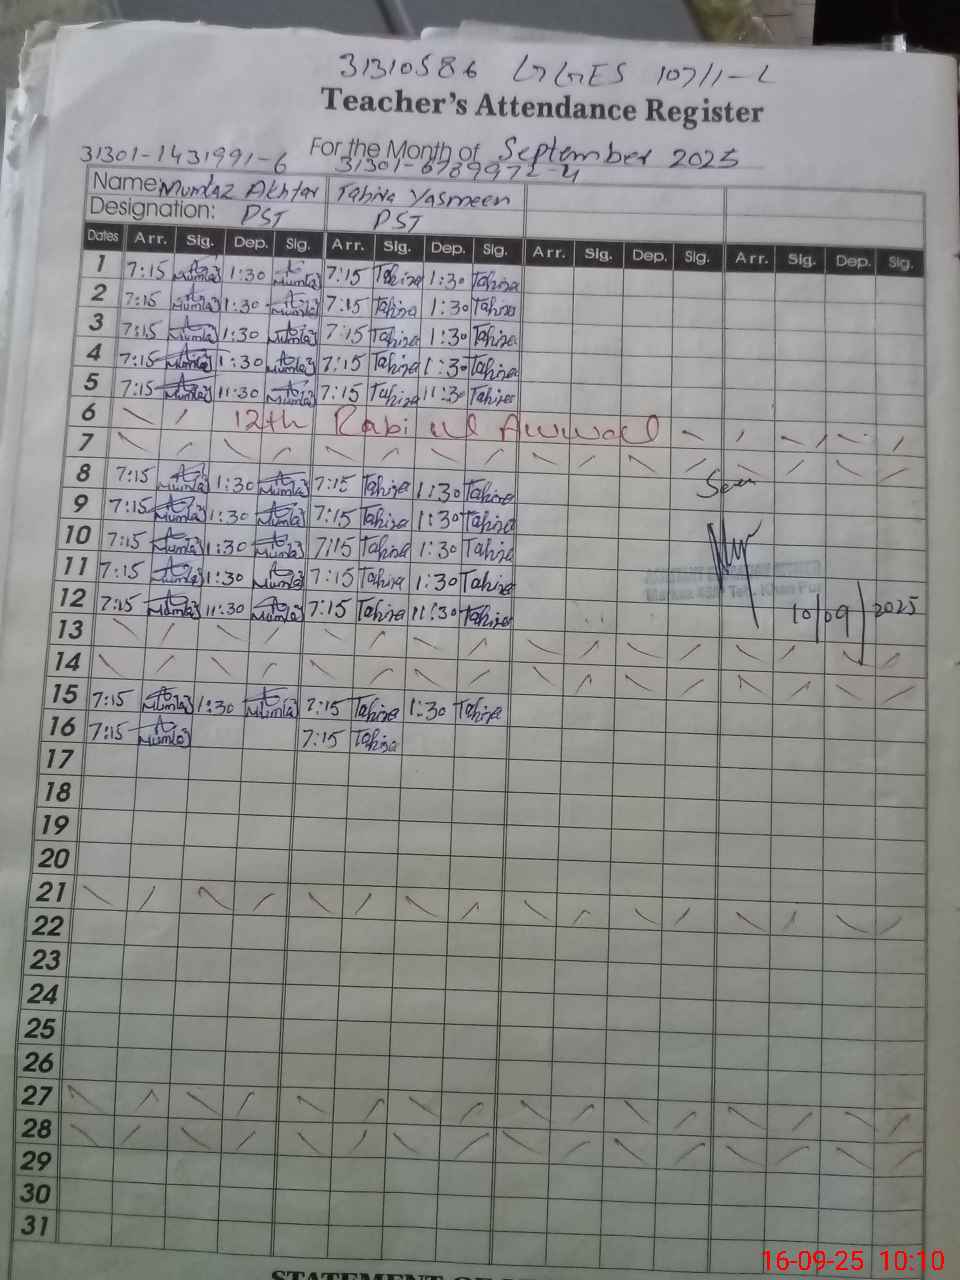 31310586 GGES 107/1-L
Teacher's Attendance Register
For the Month of September 2025
31301-1431991-6 31301-6789972-4
Name: Mumtaz Akhtar Tahira Yasmeen
Designation: PST PST
Dates Arr. Sig. Dep. Sig. Arr. Sig. Dep. Sig. Arr. Sig. Dep. Sig. Arr. Sig. Dep. Sig.
1 7:15 Mumtaz 1:30 Mumtaz 7:15 Tahira 1:30 Tahira
2 7:15 Mumtaz 1:30 Mumtaz 7:15 Tahira 1:30 Tahira
3 7:15 Mumtaz 1:30 Mumtaz 7:15 Tahira 1:30 Tahira
4 7:15 Mumtaz 1:30 Mumtaz 7:15 Tahira 1:30 Tahira
5 7:15 Mumtaz 11:30 Mumtaz 7:15 Tahira 11:30 Tahira
6 12th Rabi ul Awwal
7
8 7:15 Mumtaz 1:30 Mumtaz 7:15 Tahira 1:30 Tahira Seen
9 7:15 Mumtaz 1:30 Mumtaz 7:15 Tahira 1:30 Tahira
10 7:15 Mumtaz 1:30 Mumtaz 7:15 Tahira 1:30 Tahira
11 7:15 Mumtaz 1:30 Mumtaz 7:15 Tahira 1:30 Tahira
12 7:15 Mumtaz 11:30 Mumtaz 7:15 Tahira 11:30 Tahira 10/09/2025
13
14
15 7:15 Mumtaz 1:30 Mumtaz 7:15 Tahira 1:30 Tahira
16 7:15 Mumtaz 7:15 Tahira
17
18
19
20
21
22
23
24
25
26
27
28
29
30
31
16-09-25 10:10